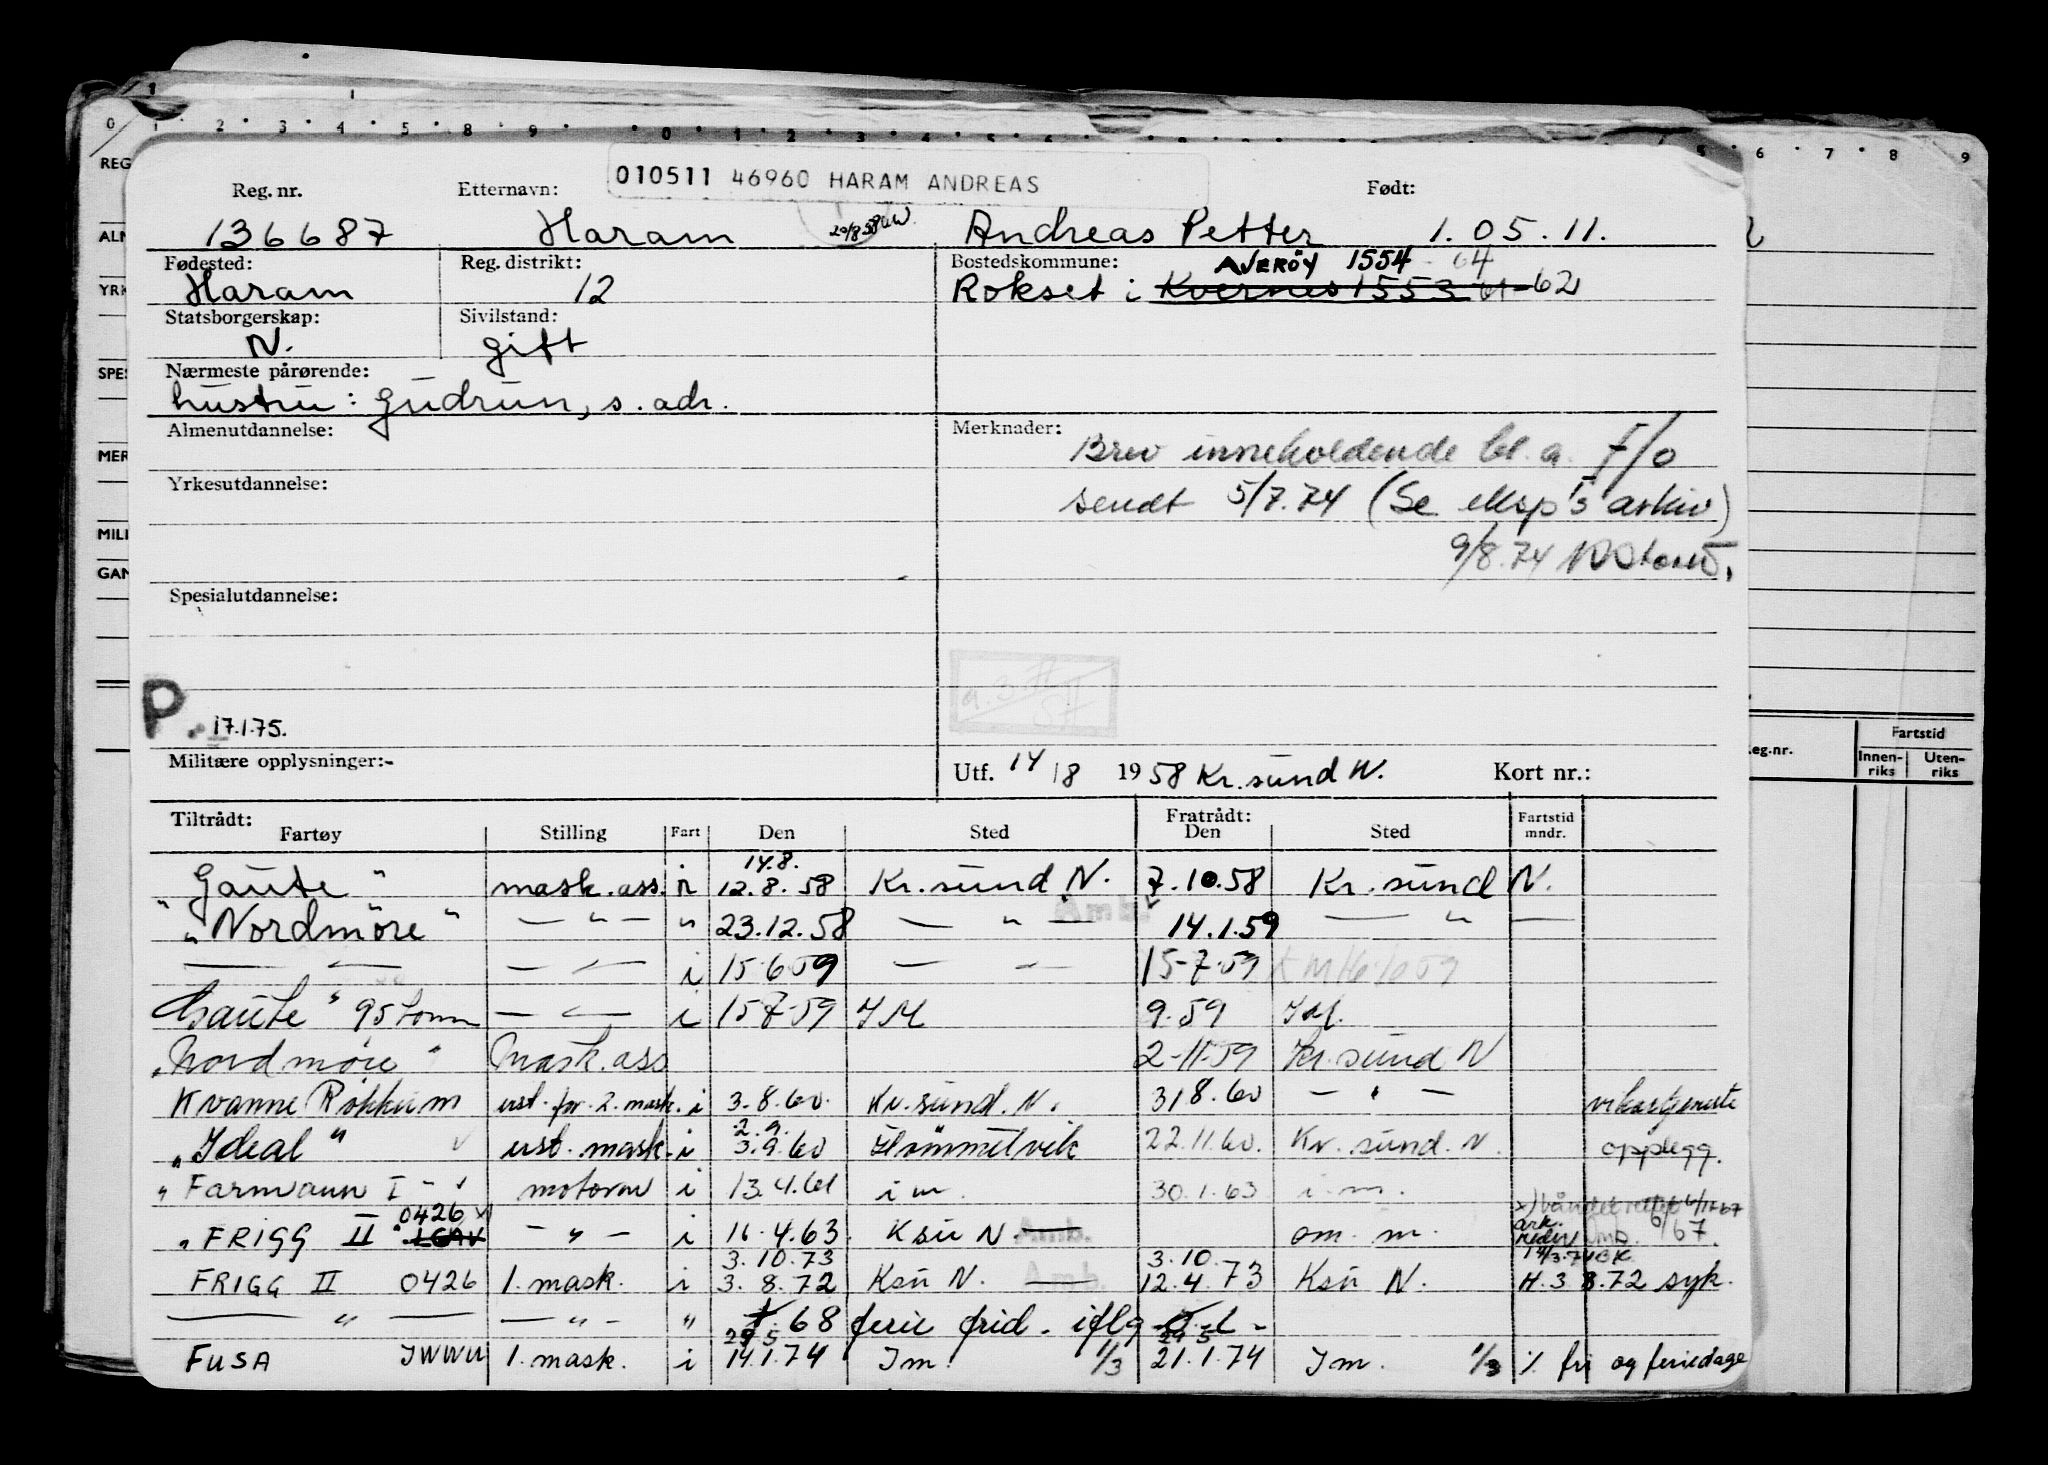 010511 46960 HARAM ANDREAS
Reg. nr. Etternavn: Født:
136687 Haram 20/8 58 Andreas Petter 1.05.11.
Fødested: Reg. distrikt: Bostedskommune: AVERÖY 1554 - 64
Haram 12 Rokset i Kvernes 1553 61-62
Statsborgerskap: Sivilstand:
N. gift
Nærmeste pårørende:
hustru: Gudrun, s. adr.
Almenutdannelse: Merknader:
Brev inneholdende bl. a. F/O
Yrkesutdannelse:
sendt 5/7.74 (Se eksp's arkiv)
9/8.74
Spesialutdannelse:
P. 17.1.75.
Militære opplysninger:-
Utf. 14/8 1958 Kr.sund N. Kort nr.:
Tiltrådt: Fratrådt: Fartstid
Fartøy Stilling Fart Den Sted Den Sted mndr.
14.8.
"Gaute" mask. ass. i 12.8.58 Kr.sund N. 7.10.58 Kr.sund N.
"Nordmöre" — " — " 23.12.58 — " — Amb. 14.1.59 — " —
— " — — " — i 15.6.59 — " — 15-7-59
"Gaute" 95 tonn — " — i 15-7-59 IM 9.59 IM.
"Nordmöre" Mask. ass 2-11-59 Kr.sund N
Kvanne Røkkum ust. for 2. mask. i 3.8.60. Kr.sund. N. 31/8.60 — " — vikartjeneste
2.9.
"Ideal" ust. mask. i 3.9.60 22.11.60. Kr.sund. N. opplegg.
"Farmann I" motorm i 13.4.61 i m. 30.1.63 i. m.
0426 x)
"FRIGG II" LGAV — " — i 16.4.63. Ksu N. Amb. om. m. 6/67.
3.10.73 3.10.
FRIGG II 0426 1. mask. i 3.8.72 Ksu N. Amb. 12.4.73 Ksu N. H. 3.8.72 syk.
— " — — " — " 68 ferie frid. iflg
29 5 29 5
FUSA JWWU 1. mask. i 14.1.74 Im. 1/3 21.1.74 Im. 1/3 % fri og feriedage
REG
ALM
YRK
SPES
MER
MILI
GAN
Reg.nr. Fartstid
Innen-riks Uten-riks